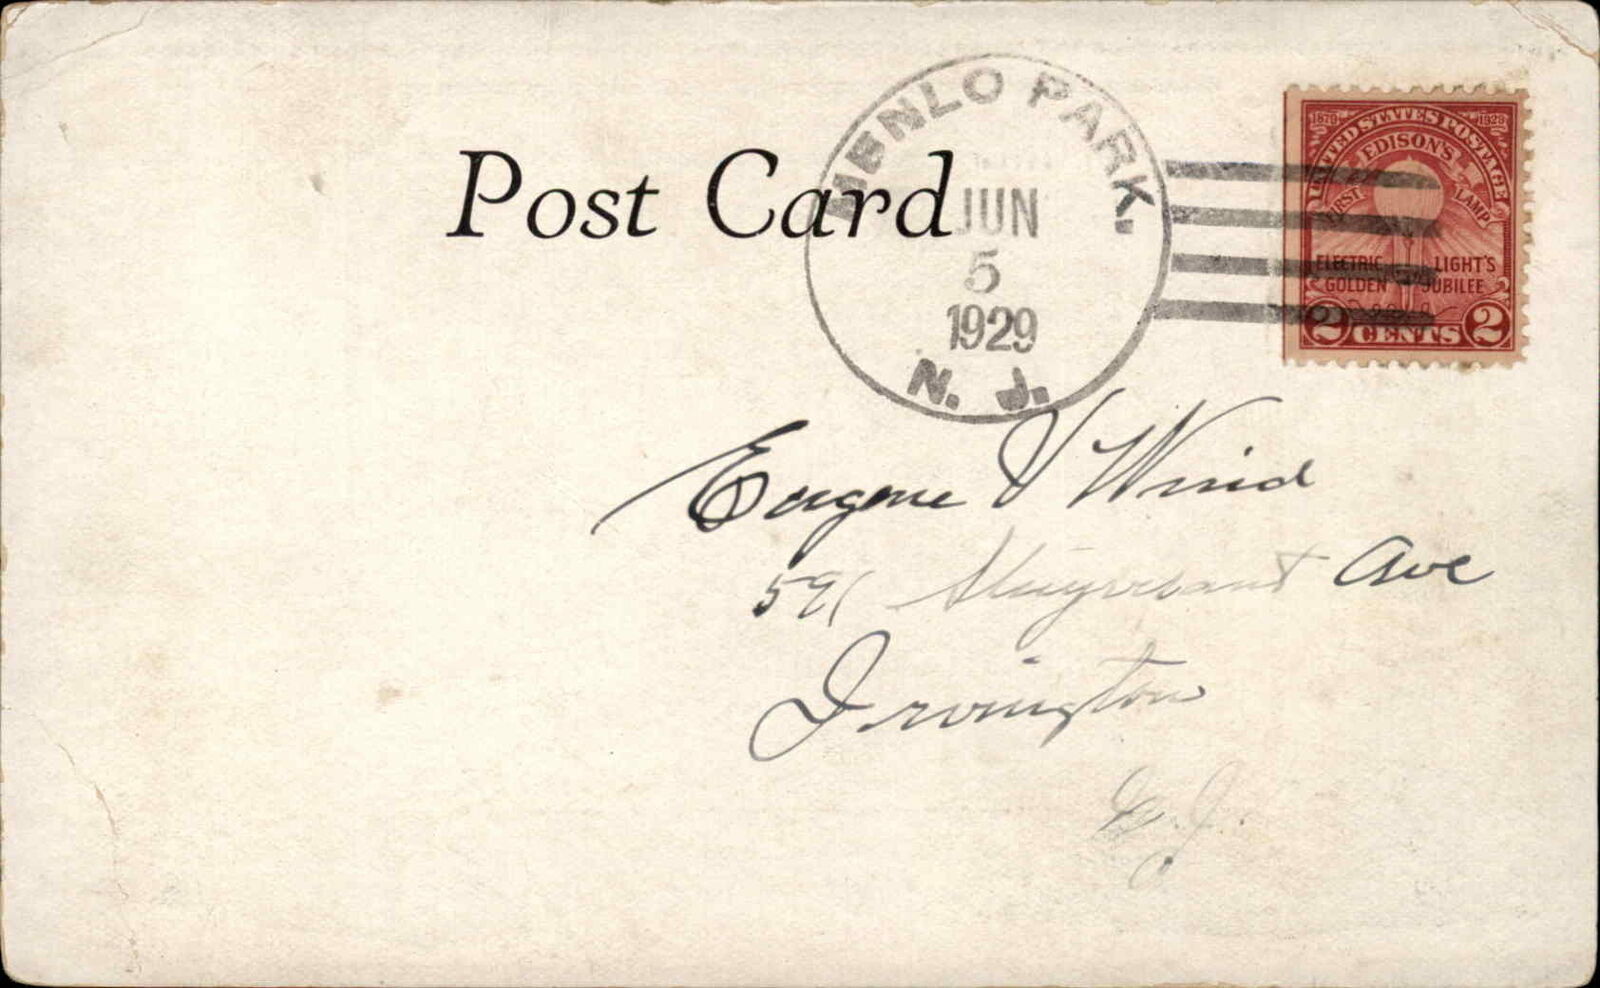 Post Card
MENLO PARK.
JUN
5
1929
N. J.
1879 UNITED STATES POSTAGE 1929
EDISON'S FIRST LAMP
ELECTRIC LIGHT'S
GOLDEN JUBILEE
2 CENTS 2
Eugene V Wind
591 Stuyvesant Ave
Irvington
N. J.